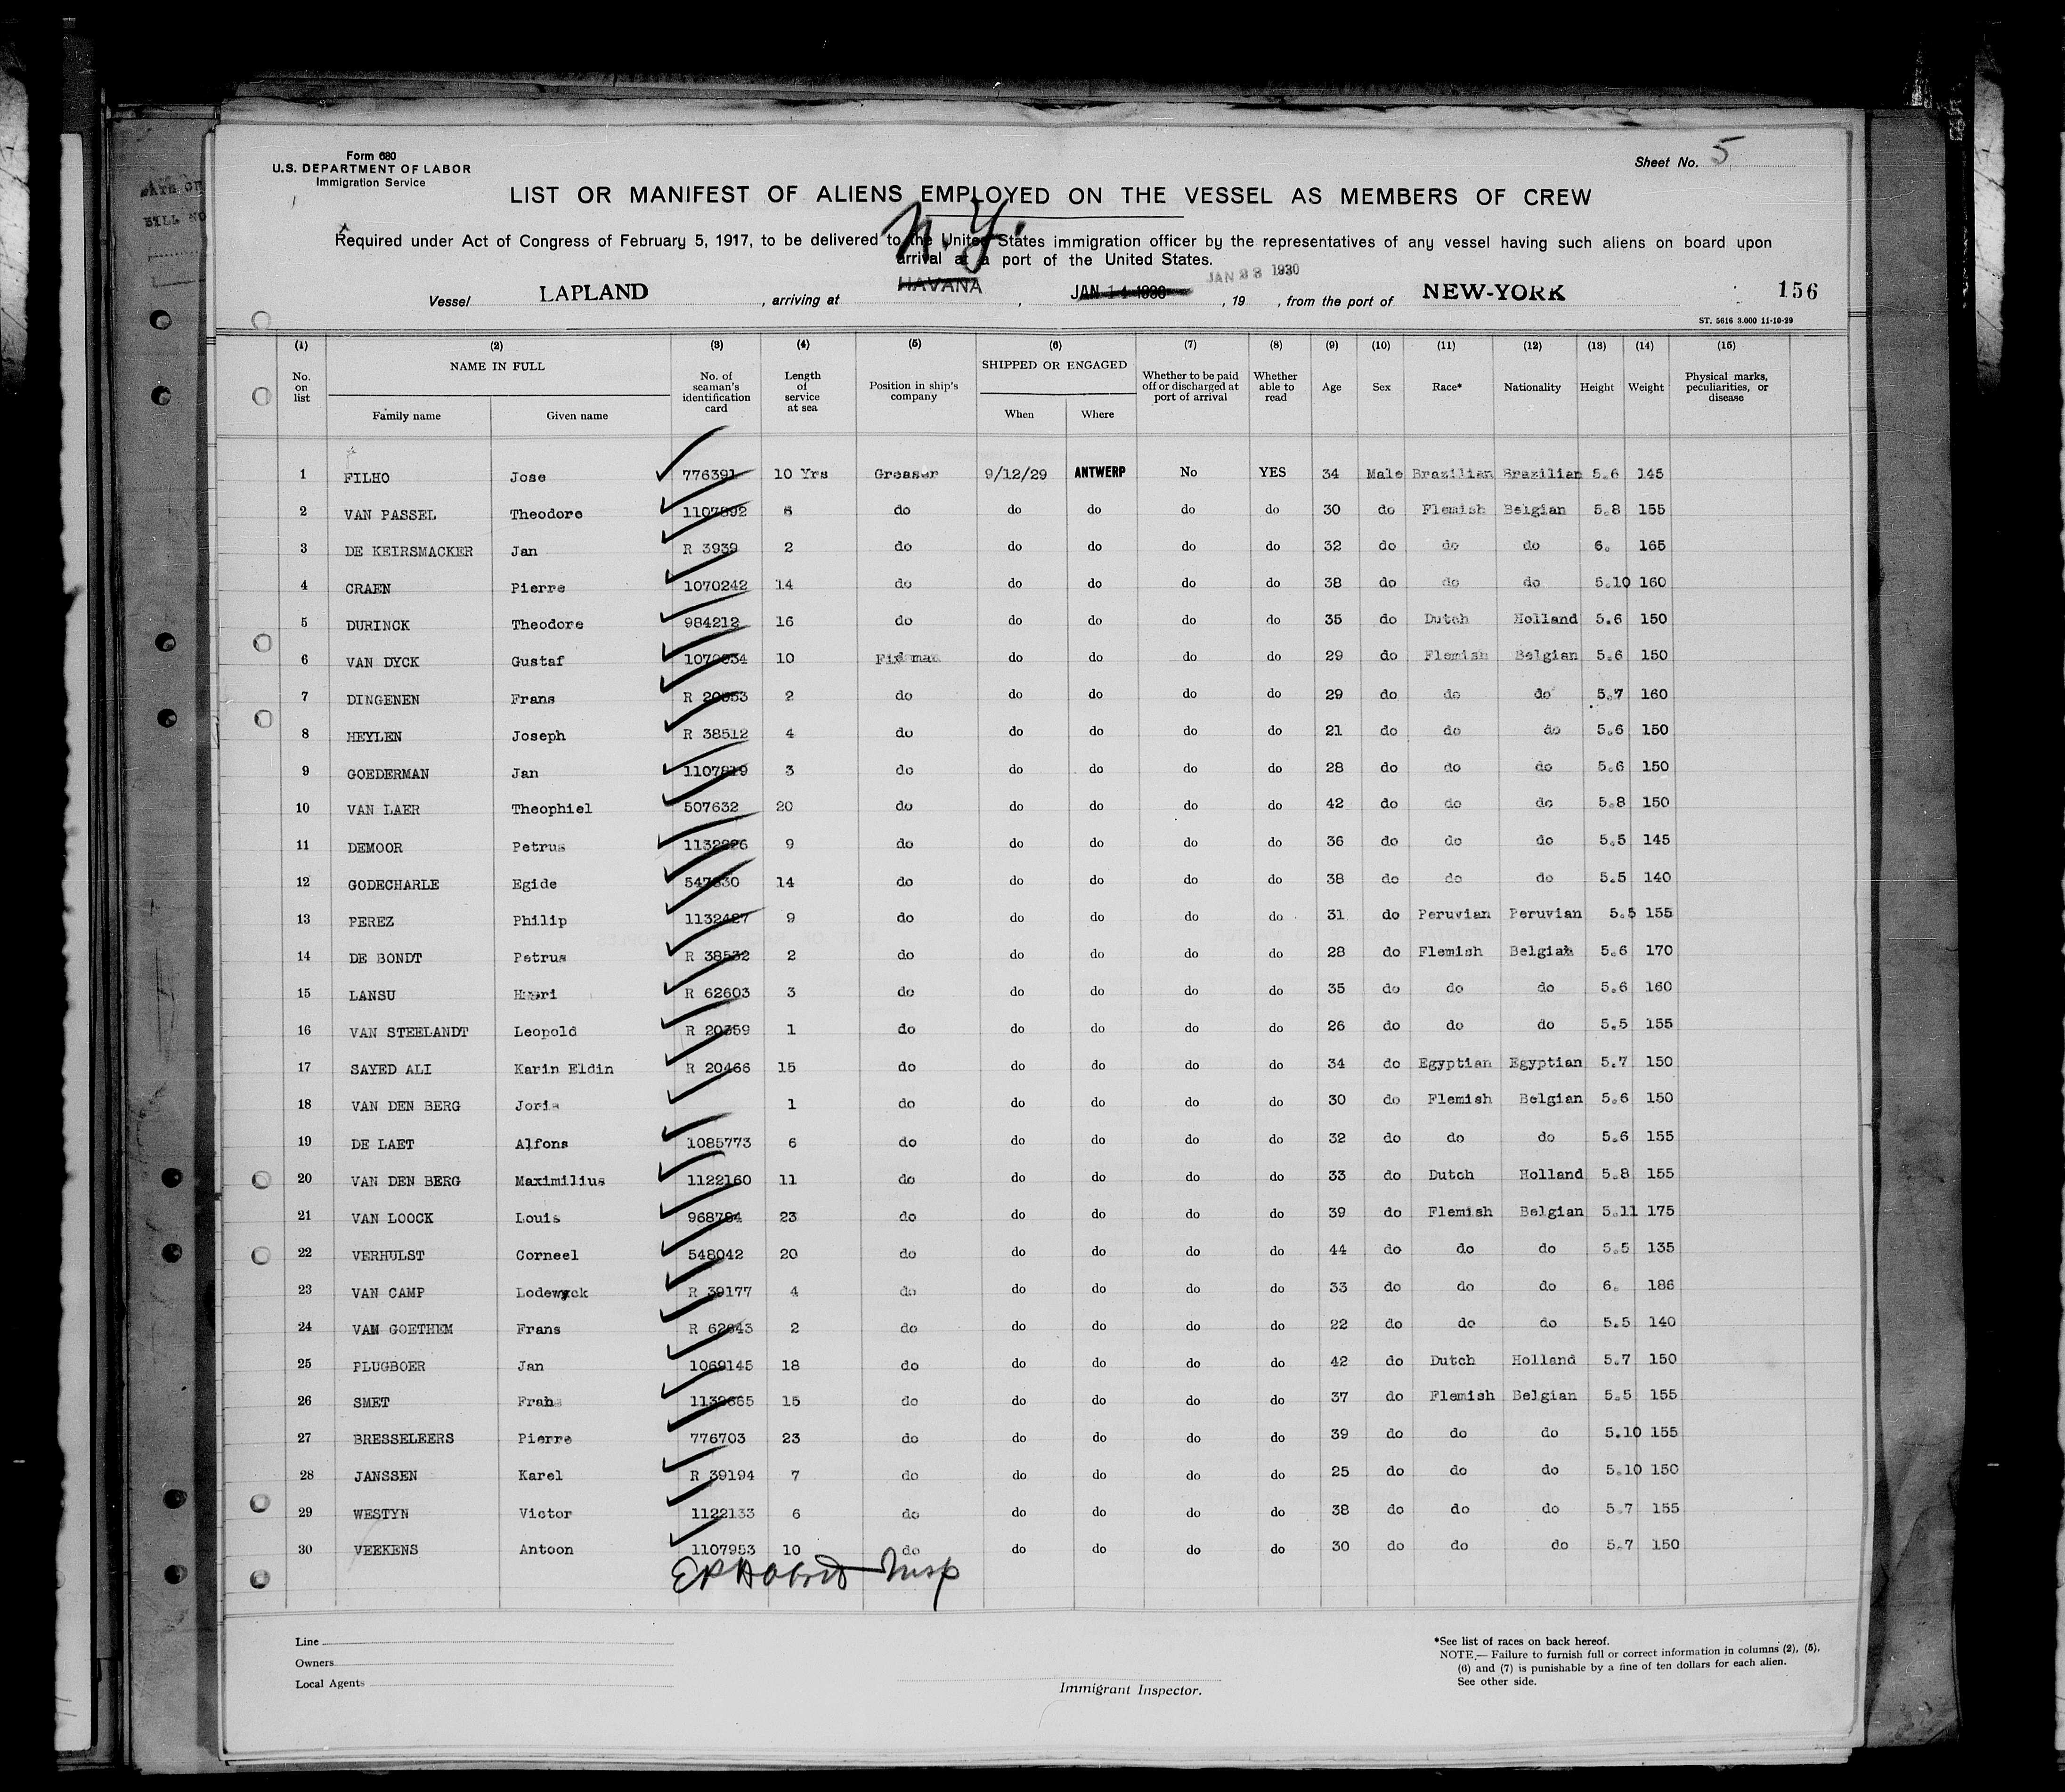 Form 680
U.S. DEPARTMENT OF LABOR
Immigration Service
Sheet No. 5
LIST OR MANIFEST OF ALIENS EMPLOYED ON THE VESSEL AS MEMBERS OF CREW
N.Y.
Required under Act of Congress of February 5, 1917, to be delivered to the United States immigration officer by the representatives of any vessel having such aliens on board upon
arrival at a port of the United States.
Vessel LAPLAND, arriving at HAVANA, JAN 14 1930 JAN 23 1930, 19 , from the port of NEW-YORK 156
ST. 5616 3.000 11-10-29
(1) (2) (3) (4) (5) (6) (7) (8) (9) (10) (11) (12) (13) (14) (15)
No. on list NAME IN FULL Family name Given name No. of seaman's identification card Length of service at sea Position in ship's company SHIPPED OR ENGAGED When Where Whether to be paid off or discharged at port of arrival Whether able to read Age Sex Race* Nationality Height Weight Physical marks, peculiarities, or disease
1 FILHO Jose 776391 10 Yrs Greaser 9/12/29 ANTWERP No YES 34 Male Brazilian Brazilian 5.6 145
2 VAN PASSEL Theodore 1107892 6 do do do do do 30 do Flemish Belgian 5.8 155
3 DE KEIRSMACKER Jan R 3939 2 do do do do do 32 do do do 6. 165
4 CRAEN Pierre 1070242 14 do do do do do 38 do do do 5.10 160
5 DURINCK Theodore 984212 16 do do do do do 35 do Dutch Holland 5.6 150
6 VAN DYCK Gustaf 10 do do do do 29 do Flemish Belgian 5.6 150
7 DINGENEN Frans R 2 do do do do do 29 do do do 5.7 160
8 HEYLEN Joseph R 38512 4 do do do do do 21 do do do 5.6 150
9 GOEDERMAN Jan 1107819 3 do do do do do 28 do do do 5.6 150
10 VAN LAER Theophiel 507632 20 do do do do do 42 do do do 5.8 150
11 DEMOOR Petrus 9 do do do do do 36 do do do 5.5 145
12 GODECHARLE Egide 14 do do do do do 38 do do do 5.5 140
13 PEREZ Philip 1132427 9 do do do do do 31 do Peruvian Peruvian 5.5 155
14 DE BONDT Petrus R 38532 2 do do do do do 28 do Flemish Belgian 5.6 170
15 LANSU Henri R 62603 3 do do do do do 35 do do do 5.6 160
16 VAN STEELANDT Leopold R 20359 1 do do do do do 26 do do do 5.5 155
17 SAYED ALI Karin Eldin R 20466 15 do do do do do 34 do Egyptian Egyptian 5.7 150
18 VAN DEN BERG Joris 1 do do do do do 30 do Flemish Belgian 5.6 150
19 DE LAET Alfons 1085773 6 do do do do do 32 do do do 5.6 155
20 VAN DEN BERG Maximilius 1122160 11 do do do do do 33 do Dutch Holland 5.8 155
21 VAN LOOCK Louis 968784 23 do do do do do 39 do Flemish Belgian 5.11 175
22 VERHULST Corneel 548042 20 do do do do do 44 do do do 5.5 135
23 VAN CAMP Lodewyck R 39177 4 do do do do do 33 do do do 6. 186
24 VAM GOETHEM Frans R 62643 2 do do do do do 22 do do do 5.5 140
25 PLUGBOER Jan 1069145 18 do do do do do 42 do Dutch Holland 5.7 150
26 SMET Frans 15 do do do do do 37 do Flemish Belgian 5.5 155
27 BRESSELEERS Pierre 776703 23 do do do do do 39 do do do 5.10 155
28 JANSSEN Karel R 39194 7 do do do do do 25 do do do 5.10 150
29 WESTYN Victor 1122133 6 do do do do do 38 do do do 5.7 155
30 VEEKENS Antoon 1107953 10 do do do do do 30 do do do 5.7 150
Insp
Line
Owners
Local Agents
Immigrant Inspector.
*See list of races on back hereof.
NOTE.— Failure to furnish full or correct information in columns (2), (5),
(6) and (7) is punishable by a fine of ten dollars for each alien.
See other side.